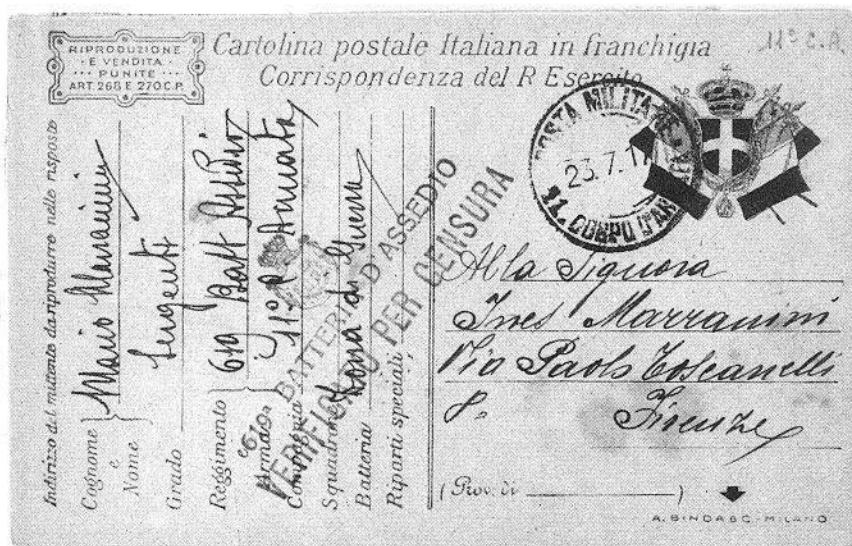 11º C.A.
RIPRODUZIONE
E VENDITA
PUNITE
ART. 268 E 270 C.P.
Cartolina postale Italiana in franchigia
Corrispondenza del R Esercito
POSTA MILITARE
23.7.17
11. CORPO D'ARMATA
Indirizzo del mittente da riprodurre nelle risposte
Cognome
e
Nome
Mario Marranini
Grado
Sergente
Reggimento
619 Batt Assedio
Arma
Compagnia
11º C. Armata
Squadrone
Zona di Guerra
Batteria
Riparti speciali
619ª BATTERIA D'ASSEDIO
VERIFICATO PER CENSURA
Alla Signora
Ines Marranini
Via Paolo Toscanelli
8.
Firenze
(Prov. di )
A. BINDA & C - MILANO